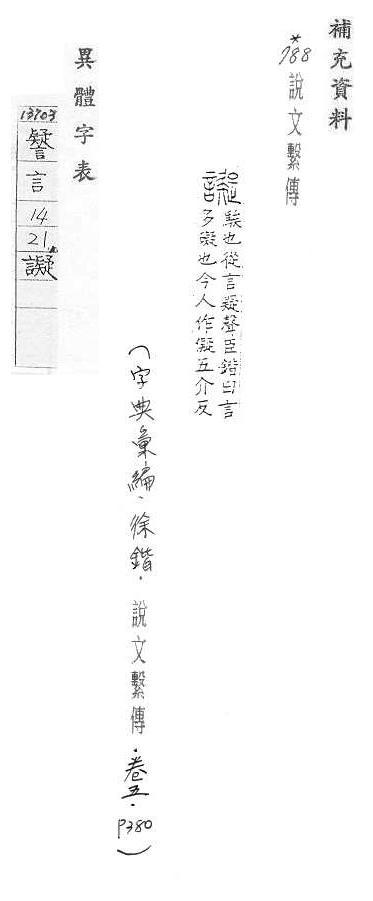 補充資料
*788 說文繫傳
譺 騃也從言疑聲臣鍇曰言
多礙也今人作儗五介反
(字典彙編·徐鍇·說文繫傳·卷五·P380)
異體字表
13703
言
14
21
譺